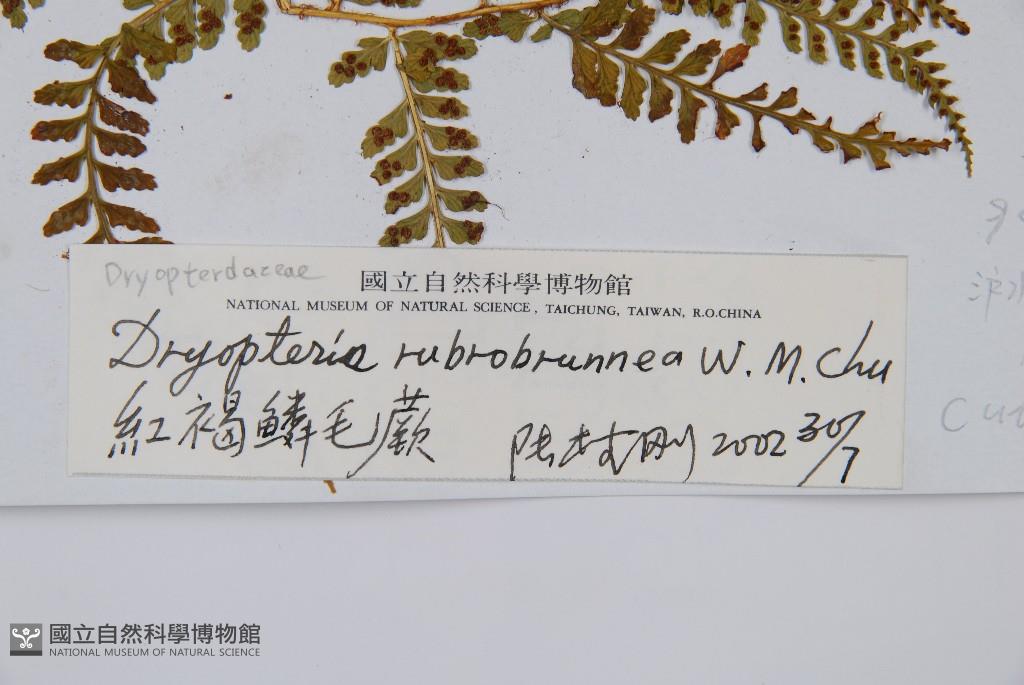 Dryopterdaceae
國立自然科學博物館
NATIONAL MUSEUM OF NATURAL SCIENCE, TAICHUNG, TAIWAN, R.O.CHINA
Dryopteris rubrobrunnea W. M. Chu
紅褐鱗毛蕨 陆树刚 2002 30/7
國立自然科學博物館
NATIONAL MUSEUM OF NATURAL SCIENCE